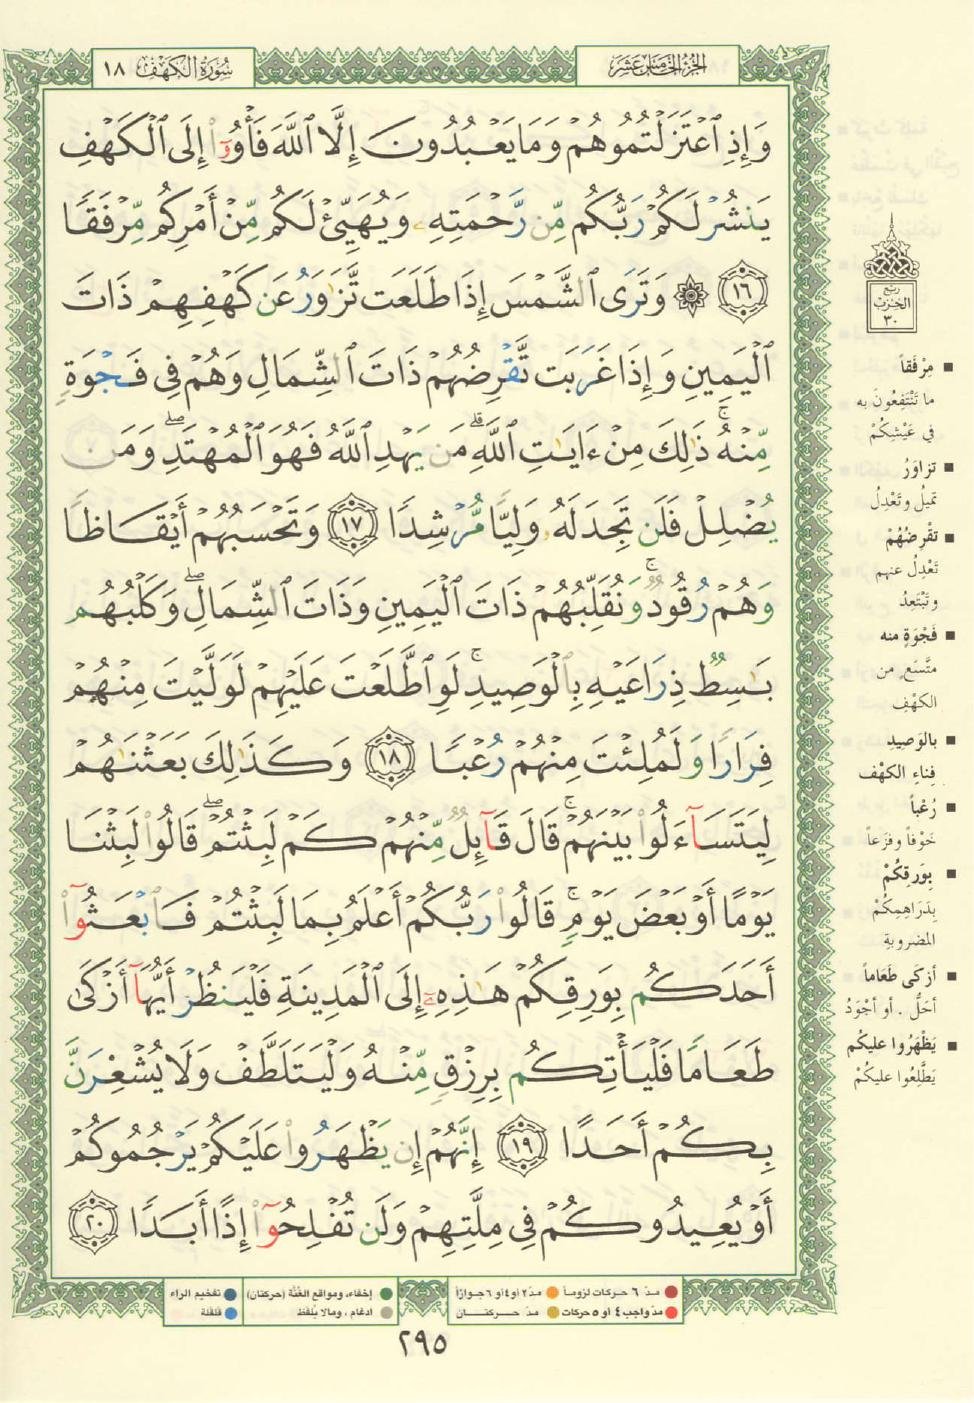 الجزء الخامس عشر
سورة الكهف ١٨
وَإِذِ ٱعْتَزَلْتُمُوهُمْ وَمَا يَعْبُدُونَ إِلَّا ٱللَّهَ فَأْوُۥٓا۟ إِلَى ٱلْكَهْفِ
يَنشُرْ لَكُمْ رَبُّكُم مِّن رَّحْمَتِهِۦ وَيُهَيِّئْ لَكُم مِّنْ أَمْرِكُم مِّرْفَقًا
١٦ ۞ وَتَرَى ٱلشَّمْسَ إِذَا طَلَعَت تَّزَٰوَرُ عَن كَهْفِهِمْ ذَاتَ
ٱلْيَمِينِ وَإِذَا غَرَبَت تَّقْرِضُهُمْ ذَاتَ ٱلشِّمَالِ وَهُمْ فِى فَجْوَةٍ
مِّنْهُ ۚ ذَٰلِكَ مِنْ ءَايَٰتِ ٱللَّهِ ۗ مَن يَهْدِ ٱللَّهُ فَهُوَ ٱلْمُهْتَدِ ۖ وَمَن
يُضْلِلْ فَلَن تَجِدَ لَهُۥ وَلِيًّا مُّرْشِدًا ١٧ وَتَحْسَبُهُمْ أَيْقَاظًا
وَهُمْ رُقُودٌ ۚ وَنُقَلِّبُهُمْ ذَاتَ ٱلْيَمِينِ وَذَاتَ ٱلشِّمَالِ ۖ وَكَلْبُهُم
بَٰسِطٌ ذِرَاعَيْهِ بِٱلْوَصِيدِ ۚ لَوِ ٱطَّلَعْتَ عَلَيْهِمْ لَوَلَّيْتَ مِنْهُمْ
فِرَارًا وَلَمُلِئْتَ مِنْهُمْ رُعْبًا ١٨ وَكَذَٰلِكَ بَعَثْنَٰهُمْ
لِيَتَسَآءَلُوا۟ بَيْنَهُمْ ۚ قَالَ قَآئِلٌ مِّنْهُمْ كَمْ لَبِثْتُمْ ۖ قَالُوا۟ لَبِثْنَا
يَوْمًا أَوْ بَعْضَ يَوْمٍ ۚ قَالُوا۟ رَبُّكُمْ أَعْلَمُ بِمَا لَبِثْتُمْ فَٱبْعَثُوٓا۟
أَحَدَكُم بِوَرِقِكُمْ هَٰذِهِۦٓ إِلَى ٱلْمَدِينَةِ فَلْيَنظُرْ أَيُّهَآ أَزْكَىٰ
طَعَامًا فَلْيَأْتِكُم بِرِزْقٍ مِّنْهُ وَلْيَتَلَطَّفْ وَلَا يُشْعِرَنَّ
بِكُمْ أَحَدًا ١٩ إِنَّهُمْ إِن يَظْهَرُوا۟ عَلَيْكُمْ يَرْجُمُوكُمْ
أَوْ يُعِيدُوكُمْ فِى مِلَّتِهِمْ وَلَن تُفْلِحُوٓا۟ إِذًا أَبَدًا ٢٠
ربع
الحزب
٣٠
مِرْفَقاً
ما تَنْتَفِعُونَ به
في عَيْشِكُمْ
تزاوَرُ
تميلُ وتَعْدِلُ
تقْرِضُهُمْ
تَعْدِلُ عنهم
وتَبْتَعِدُ
فَجْوَةٍ منه
متَّسَعٍ من
الكهْفِ
بالوَصِيد
فِناءِ الكهْف
رُعْباً
خَوْفاً وفزَعاً
بِوَرِقِكُمْ
بِدَرَاهِمِكُمْ
المضروبةِ
أزكَى طَعَاماً
أحَلُّ . أو أجْوَدُ
يَظْهَرُوا عليكُم
يَطَّلِعُوا عليكُمْ
مدّ ٦ حركات لزوماً
مدّ ٢ أو ٤ أو ٦ جوازاً
إخفاء، ومواقع الغُنَّة (حركتان)
تفخيم الراء
مدّ واجب ٤ أو ٥ حركات
مدّ حركتان
ادغام ، ومالا يُلفظ
قلقلة
٢٩٥